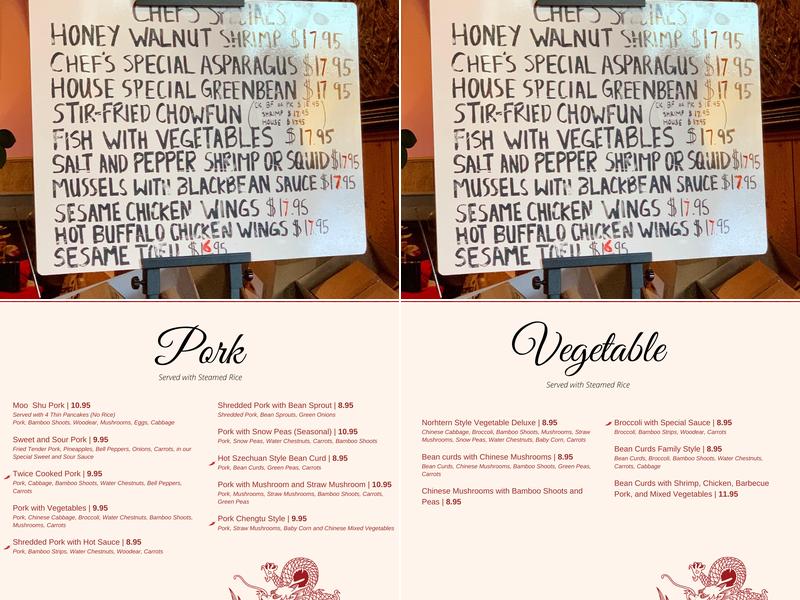 CHEF'S SPECIALS
HONEY WALNUT SHRIMP $17.95
CHEF'S SPECIAL ASPARAGUS $17.95
HOUSE SPECIAL GREENBEAN $17.95
STIR-FRIED CHOWFUN
SHRIMP $17.95
HOUSE $17.95
FISH WITH VEGETABLES $17.95
SALT AND PEPPER SHRIMP OR SQUID $17.95
MUSSELS WITH BLACKBEAN SAUCE $17.95
SESAME CHICKEN WINGS $17.95
HOT BUFFALO CHICKEN WINGS $17.95
SESAME TOFU $16.95
CHEF'S SPECIALS
HONEY WALNUT SHRIMP $17.95
CHEF'S SPECIAL ASPARAGUS $17.95
HOUSE SPECIAL GREENBEAN $17.95
STIR-FRIED CHOWFUN
SHRIMP $17.95
HOUSE $17.95
FISH WITH VEGETABLES $17.95
SALT AND PEPPER SHRIMP OR SQUID $17.95
MUSSELS WITH BLACKBEAN SAUCE $17.95
SESAME CHICKEN WINGS $17.95
HOT BUFFALO CHICKEN WINGS $17.95
SESAME TOFU $16.95
Pork
Served with Steamed Rice
Moo Shu Pork | 10.95
Served with 4 Thin Pancakes (No Rice)
Pork, Bamboo Shoots, Woodear, Mushrooms, Eggs, Cabbage
Sweet and Sour Pork | 9.95
Fried Tender Pork, Pineapples, Bell Peppers, Onions, Carrots, in our
Special Sweet and Sour Sauce
Twice Cooked Pork | 9.95
Pork, Cabbage, Bamboo Shoots, Water Chestnuts, Bell Peppers,
Carrots
Pork with Vegetables | 9.95
Pork, Chinese Cabbage, Broccoli, Water Chestnuts, Bamboo Shoots,
Mushrooms, Carrots
Shredded Pork with Hot Sauce | 8.95
Pork, Bamboo Strips, Water Chestnuts, Woodear, Carrots
Shredded Pork with Bean Sprout | 8.95
Shredded Pork, Bean Sprouts, Green Onions
Pork with Snow Peas (Seasonal) | 10.95
Pork, Snow Peas, Water Chestnuts, Carrots, Bamboo Shoots
Hot Szechuan Style Bean Curd | 8.95
Pork, Bean Curds, Green Peas, Carrots
Pork with Mushroom and Straw Mushroom | 10.95
Pork, Mushrooms, Straw Mushrooms, Bamboo Shoots, Carrots,
Green Peas
Pork Chengtu Style | 9.95
Pork, Straw Mushrooms, Baby Corn and Chinese Mixed Vegetables
Vegetable
Served with Steamed Rice
Norhtern Style Vegetable Deluxe | 8.95
Chinese Cabbage, Broccoli, Bamboo Shoots, Mushrooms, Straw
Mushrooms, Snow Peas, Water Chestnuts, Baby Corn, Carrots
Bean curds with Chinese Mushrooms | 8.95
Bean Curds, Chinese Mushrooms, Bamboo Shoots, Green Peas,
Carrots
Chinese Mushrooms with Bamboo Shoots and
Peas | 8.95
Broccoli with Special Sauce | 8.95
Broccoli, Bamboo Strips, Woodear, Carrots
Bean Curds Family Style | 8.95
Bean Curds, Broccoli, Bamboo Shoots, Water Chestnuts,
Carrots, Cabbage
Bean Curds with Shrimp, Chicken, Barbecue
Pork, and Mixed Vegetables | 11.95